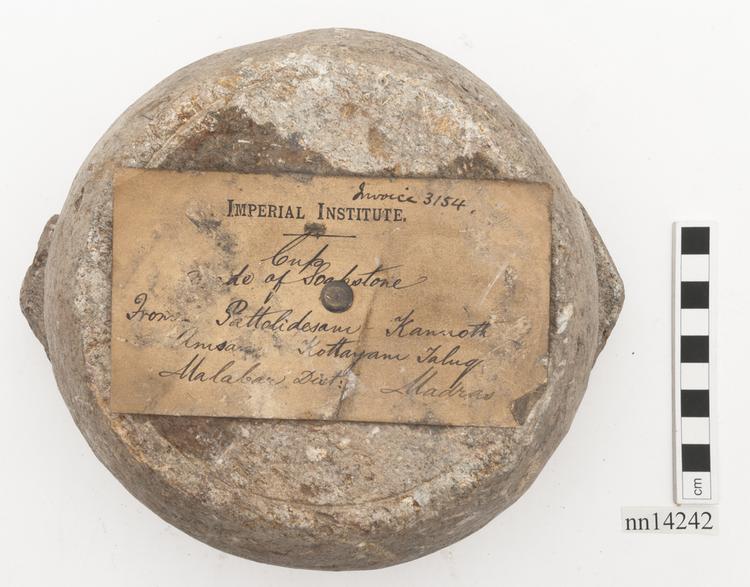 Invoice 3154.
IMPERIAL INSTITUTE.
Cup
of Soapstone
From - Pattolidesam - Kannoth
Amsam Kottayam Taluq
Malabar Dist: Madras
cm
nn14242